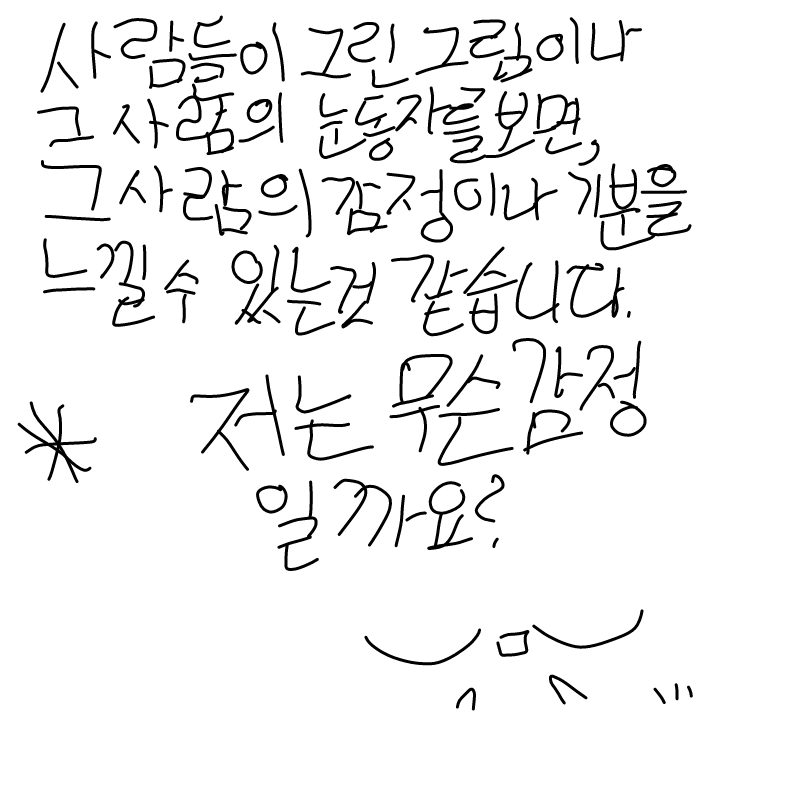 사람들이 그린 그림이나
그 사람의 눈동자를 보면,
그 사람의 감정이나 기분을
느낄 수 있는것 같습니다.
* 저는 무슨 감정
일까요?